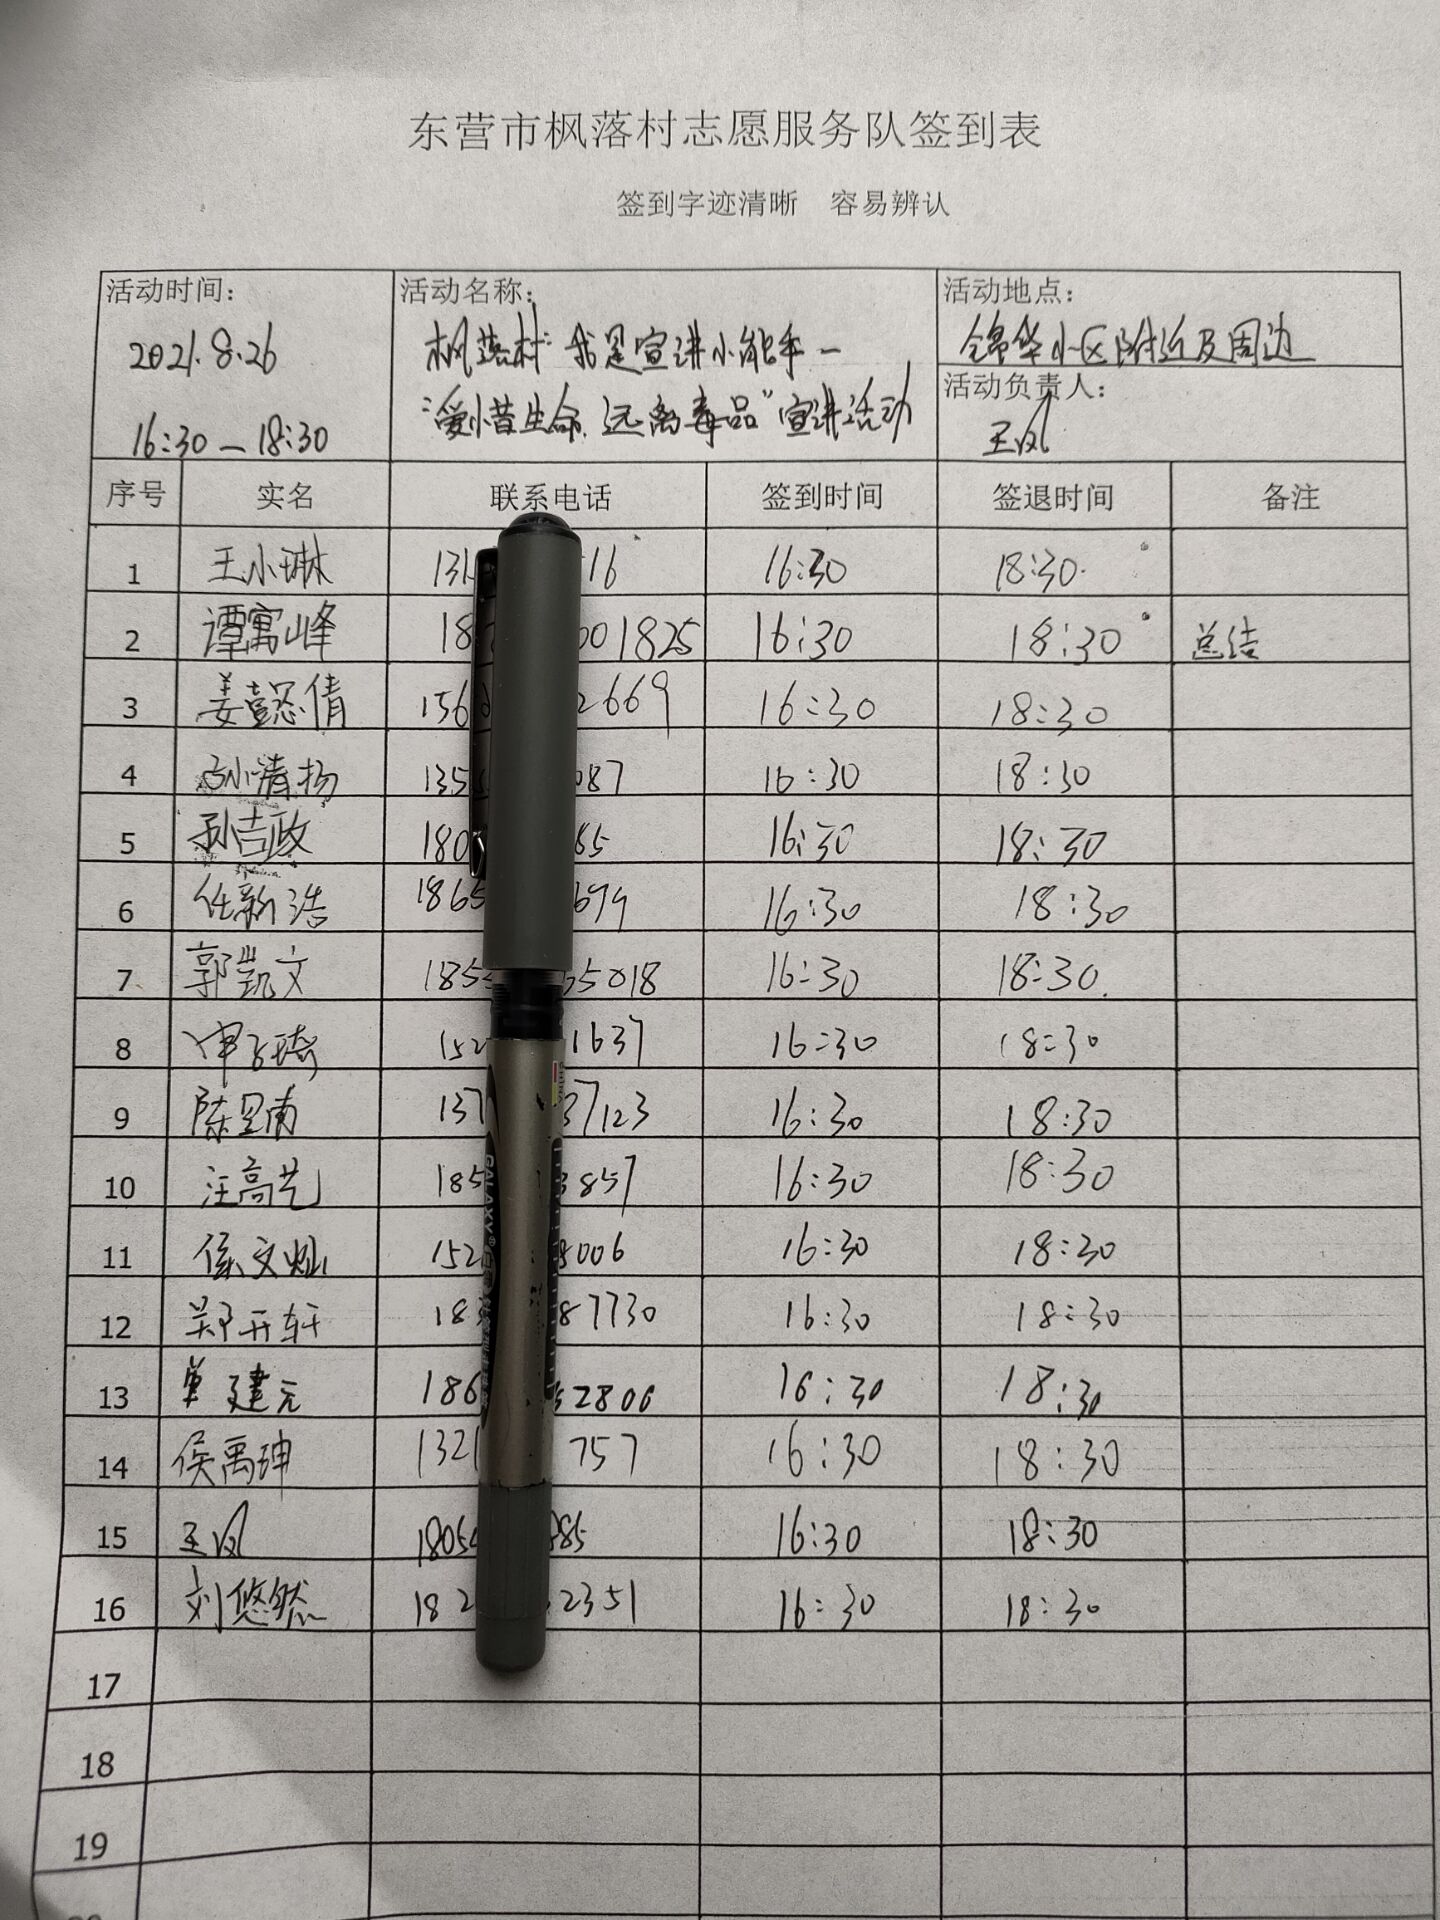 东营市枫落村志愿服务队签到表
签到字迹清晰 容易辨认
活动时间: 活动名称: 活动地点:
2021.8.26 枫落村“我是宣讲小能手— 锦华小区附近及周边
16:30—18:30 “爱惜生命.远离毒品”宣讲活动 活动负责人:
王凤
序号 实名 联系电话 签到时间 签退时间 备注
1 王小琳 131 16 16:30 18:30
2 谭寓峰 18 001825 16:30 18:30 总结
3 姜懿倩 156 2669 16:30 18:30
4 孙清扬 135 087 16:30 18:30
5 孙吉政 180 85 16:30 18:30
6 任新浩 1865 699 16:30 18:30
7 郭凯文 185 55018 16:30 18:30
8 申子琦 152 1637 16:30 18:30
9 陈昱南 137 37123 16:30 18:30
10 汪高艺 185 3857 16:30 18:30
11 侯文灿 152 8006 16:30 18:30
12 郑开轩 18 87730 16:30 18:30
13 单建元 186 52806 16:30 18:30
14 侯禹珅 1321 757 16:30 18:30
15 王凤 1805 885 16:30 18:30
16 刘悠然 182 2351 16:30 18:30
17
18
19
GALAXY
CHINA